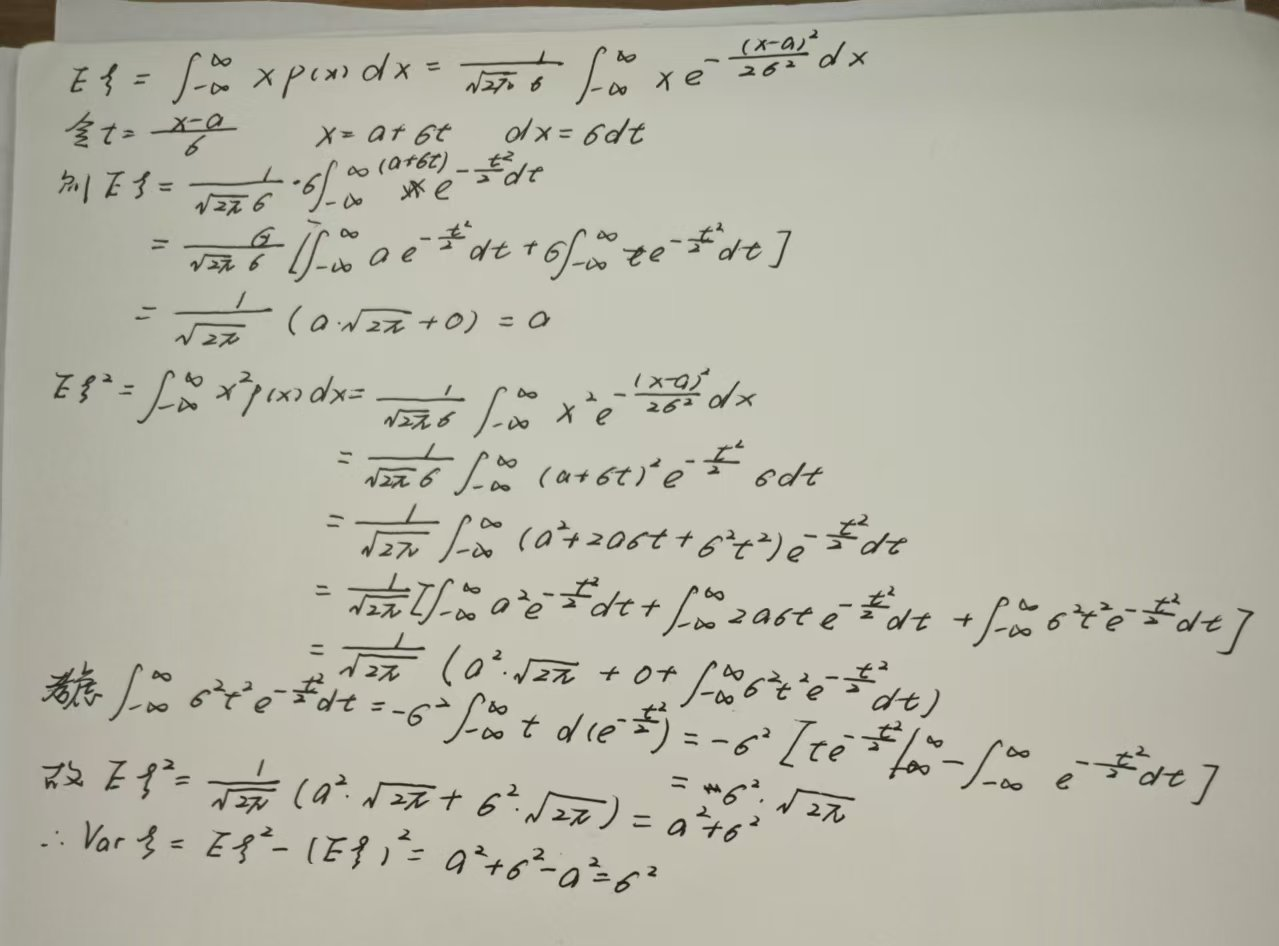 Eξ = ∫_{-∞}^{∞} x p(x) dx = \frac{1}{\sqrt{2π} σ} ∫_{-∞}^{∞} x e^{-\frac{(x-a)^2}{2σ^2}} dx
令 t = \frac{x-a}{σ} x = a+σt dx = σdt
则 Eξ = \frac{1}{\sqrt{2π} σ} · σ ∫_{-∞}^{∞} (a+σt) e^{-\frac{t^2}{2}} dt
= \frac{σ}{\sqrt{2π} σ} [∫_{-∞}^{∞} a e^{-\frac{t^2}{2}} dt + σ ∫_{-∞}^{∞} t e^{-\frac{t^2}{2}} dt]
= \frac{1}{\sqrt{2π}} (a·\sqrt{2π} + 0) = a
Eξ^2 = ∫_{-∞}^{∞} x^2 p(x) dx = \frac{1}{\sqrt{2π} σ} ∫_{-∞}^{∞} x^2 e^{-\frac{(x-a)^2}{2σ^2}} dx
= \frac{1}{\sqrt{2π} σ} ∫_{-∞}^{∞} (a+σt)^2 e^{-\frac{t^2}{2}} σdt
= \frac{1}{\sqrt{2π}} ∫_{-∞}^{∞} (a^2+2aσt+σ^2t^2) e^{-\frac{t^2}{2}} dt
= \frac{1}{\sqrt{2π}} [∫_{-∞}^{∞} a^2 e^{-\frac{t^2}{2}} dt + ∫_{-∞}^{∞} 2aσt e^{-\frac{t^2}{2}} dt + ∫_{-∞}^{∞} σ^2t^2 e^{-\frac{t^2}{2}} dt]
= \frac{1}{\sqrt{2π}} (a^2·\sqrt{2π} + 0 + ∫_{-∞}^{∞} σ^2t^2 e^{-\frac{t^2}{2}} dt)
考虑 ∫_{-∞}^{∞} σ^2t^2 e^{-\frac{t^2}{2}} dt = -σ^2 ∫_{-∞}^{∞} t d(e^{-\frac{t^2}{2}}) = -σ^2 [t e^{-\frac{t^2}{2}} |_{-∞}^{∞} - ∫_{-∞}^{∞} e^{-\frac{t^2}{2}} dt]
= σ^2·\sqrt{2π}
故 Eξ^2 = \frac{1}{\sqrt{2π}} (a^2·\sqrt{2π} + σ^2·\sqrt{2π}) = a^2+σ^2
∴ Var ξ = Eξ^2 - (Eξ)^2 = a^2+σ^2-a^2 = σ^2